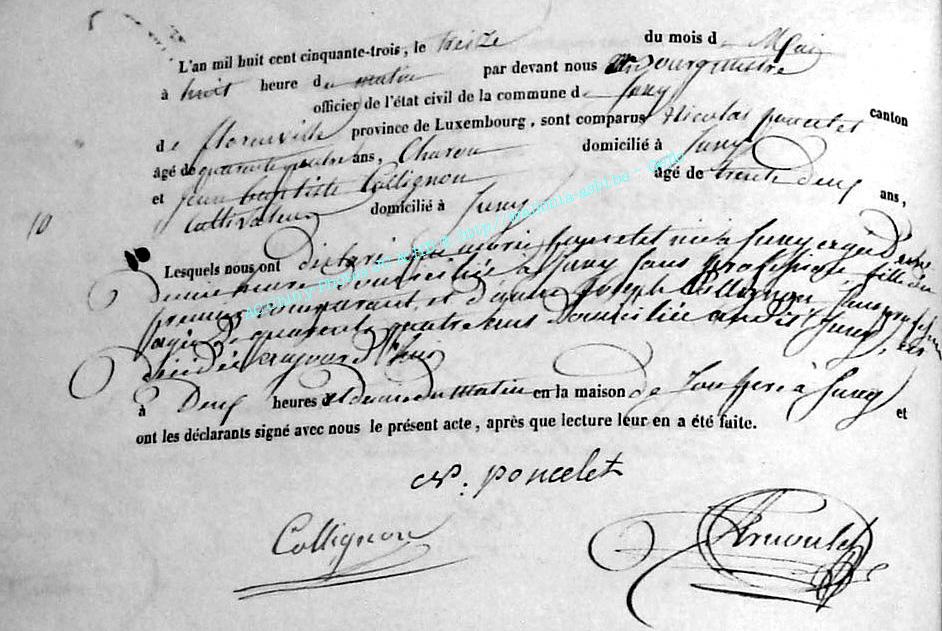 L'an mil huit cent cinquante-trois, le treize du mois d Mai
à huit heure du matin par devant nous Bourgmestre
officier de l'état civil de la commune de Juny canton
de florenville province de Luxembourg, sont comparus Nicolas poncelet
âgé de quarante quatre ans, Charon domicilié à Juny
et jean baptiste Collignon âgé de trente deux ans,
Cultivateur domicilié à Juny
10
Lesquels nous ont déclaré que marie poncelet née à Juny agée d'une
Demie heure domiciliée à Juny sans profession, fille du
premier comparant et d'anne Joseph Collignon sans profession
agée de quarante quatre ans Domiciliée audit Juny, est
Décédée aujourd'hui
à Deux heures et demie du Matin en la maison de son père à Juny et
ont les déclarants signé avec nous le présent acte, après que lecture leur en a été faite.
N. poncelet
Collignon
Arnould